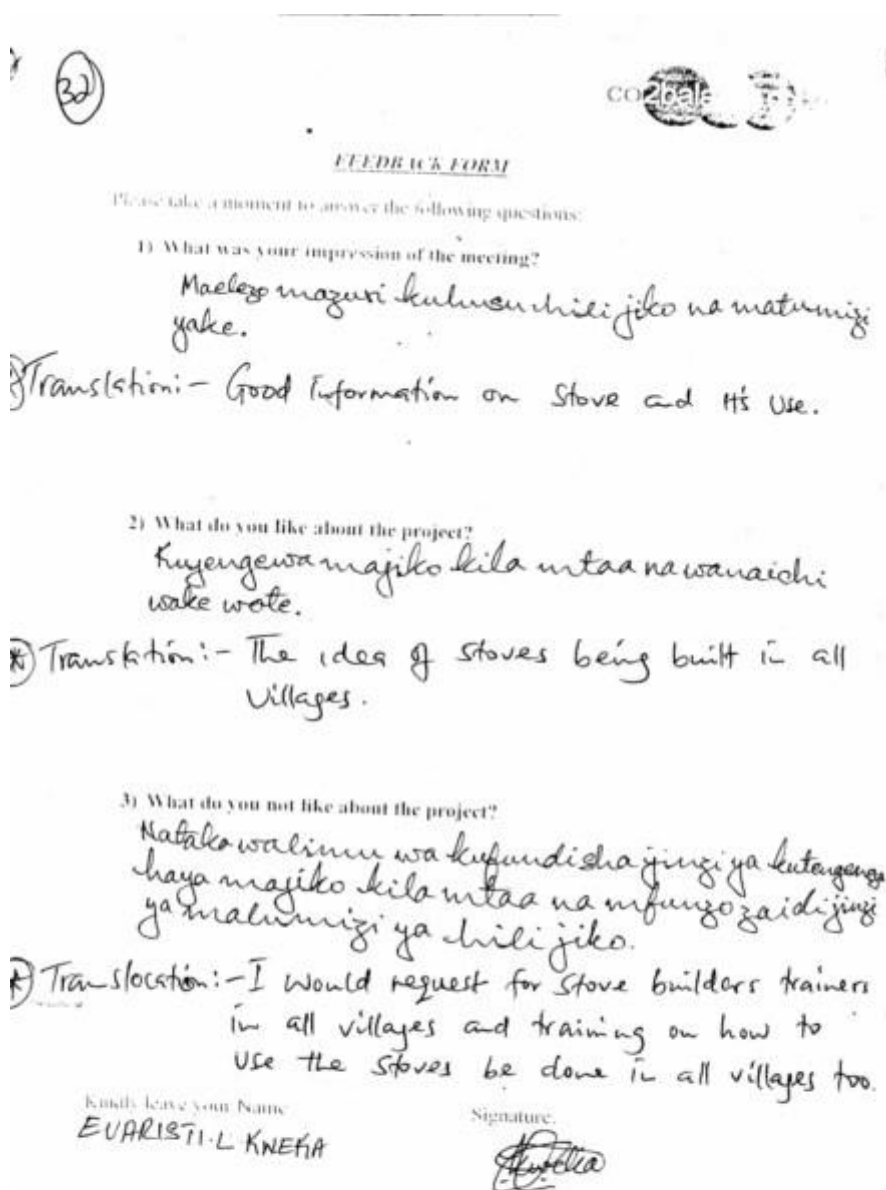 32
CO2bala
FEEDBACK FORM
Please take a moment to answer the following questions:
1) What was your impression of the meeting?
Maelezo mazuri kuhusu hili jiko na matumizi
yake.
Translation:- Good Information on Stove and It's Use.
2) What do you like about the project?
Kujengewa majiko kila mtaa na wanaichi
wake wote.
Translation:- The idea of Stoves being built in all
Villages.
3) What do you not like about the project?
Nataka walimu wa kufundisha jinzi ya kutengenza
haya majiko kila mtaa na mfunzo zaidi jinzi
ya matumizi ya hili jiko.
Translocation:- I would request for Stove builders trainers
in all villages and training on how to
use the stoves be done in all villages too.
Kindly leave your Name
Signature.
EVARISTI.L KWEKA